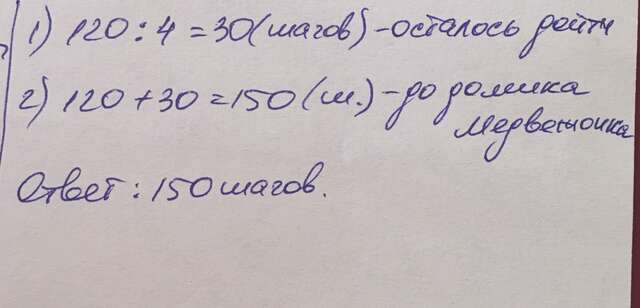 1) 120 : 4 = 30 (шагов) - осталось дойти
2) 120 + 30 = 150 (ш.) - до домика
медвежонка
Ответ : 150 шагов.